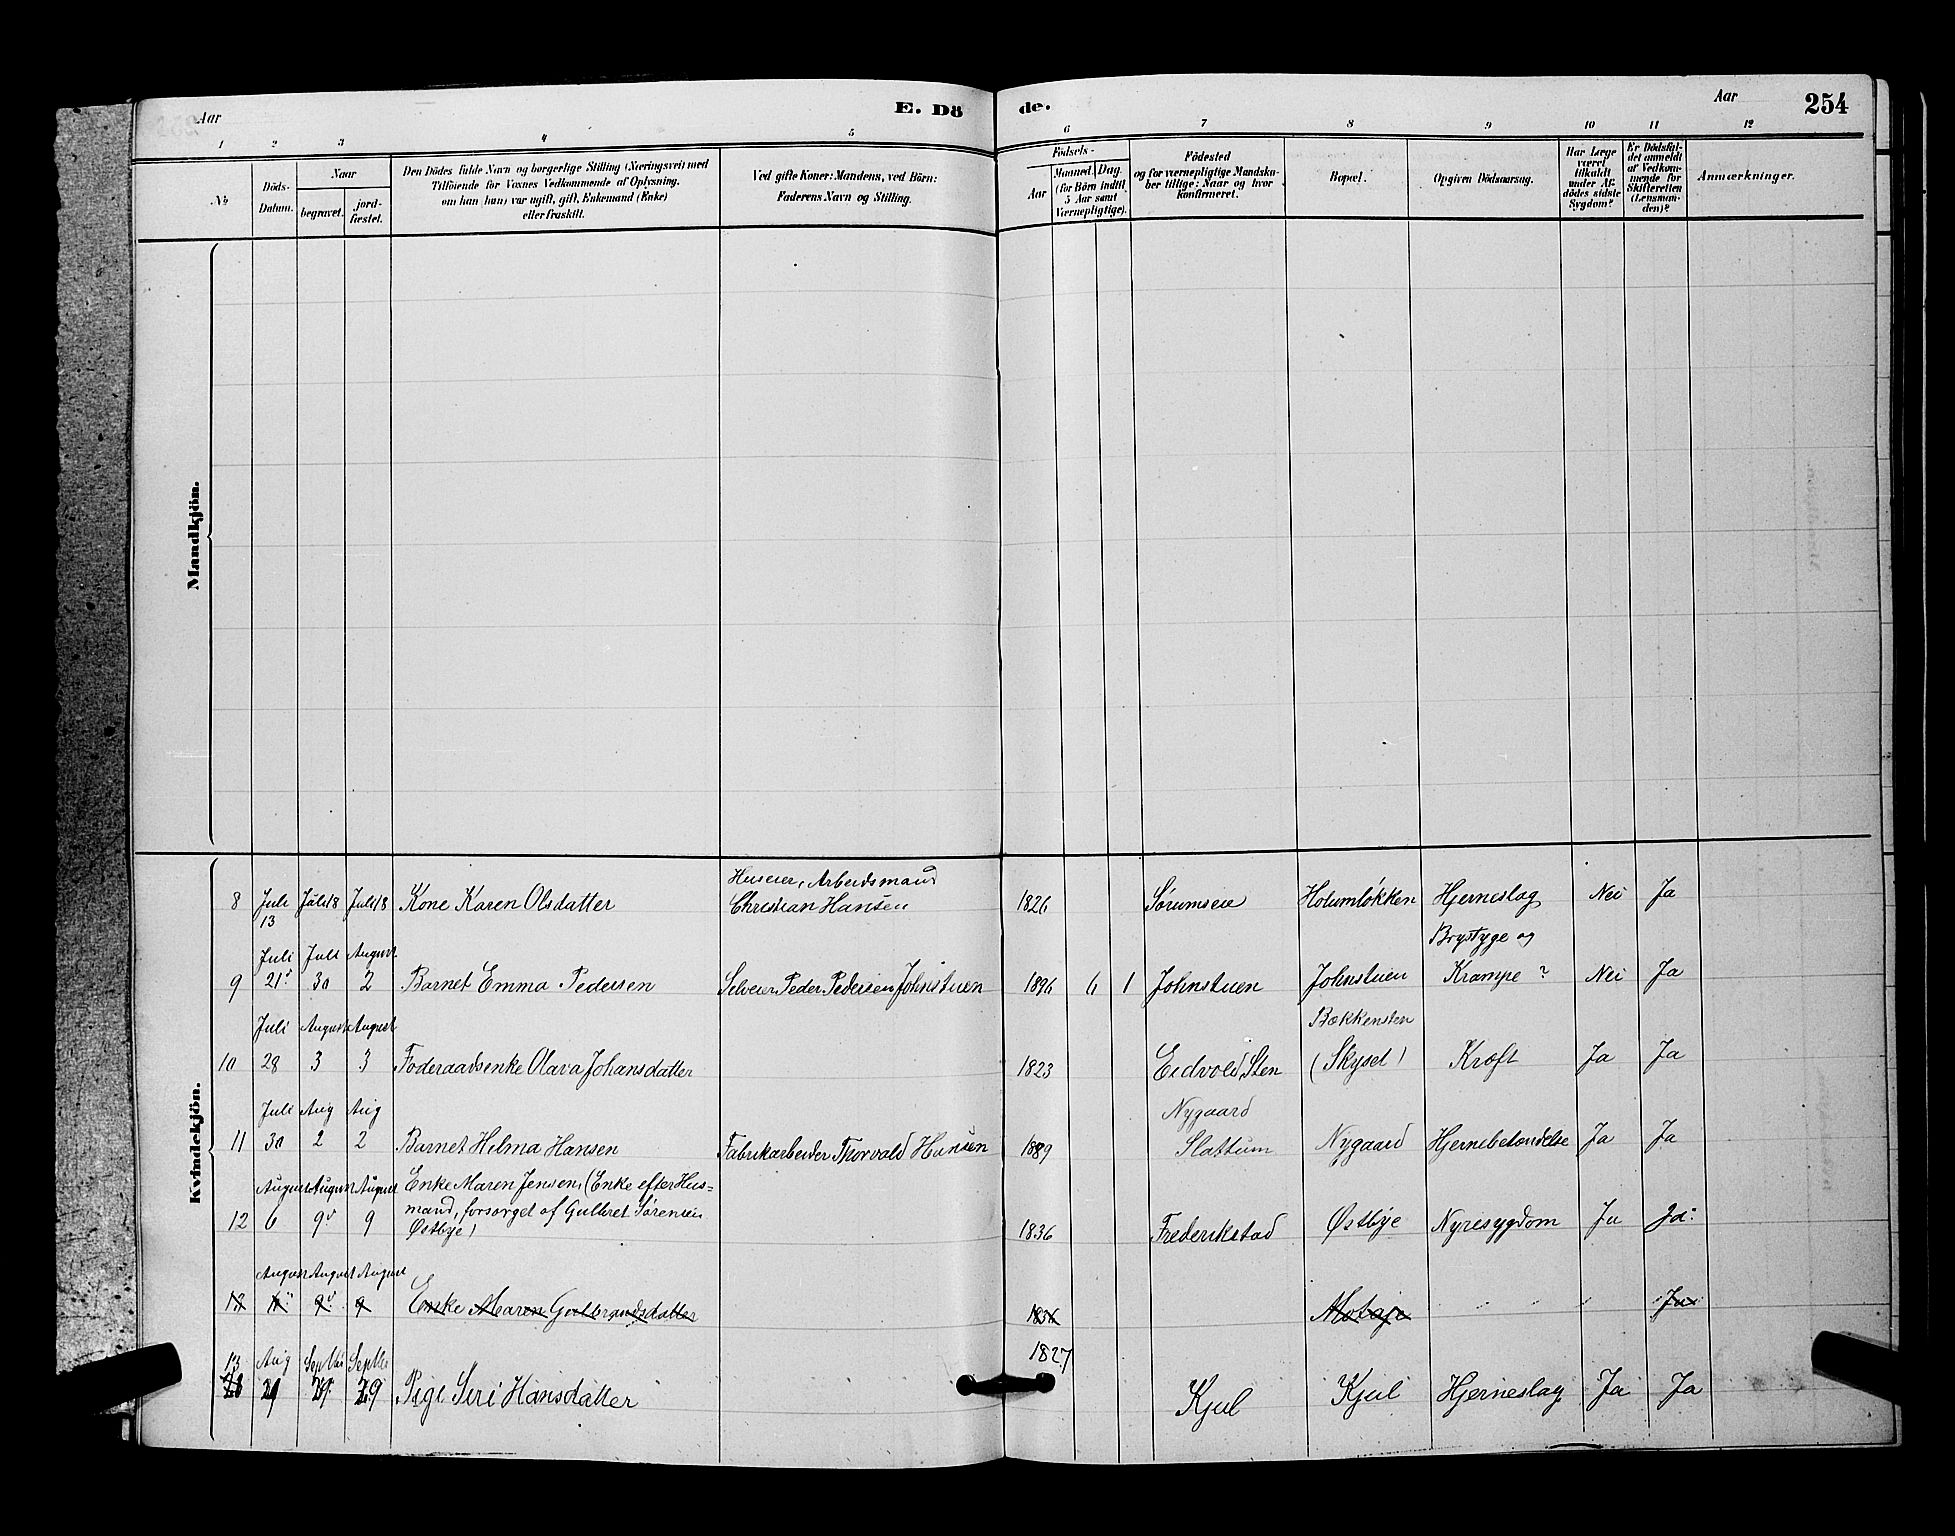 Aar
E. Dö
de.
Aar
254
1 2 3 4 5 6 7 8 9 10 11 12
No
Döds-
Datum.
Naar
begravet.
jord-
fæstet.
Den Dödes fulde Navn og borgerlige Stilling (Næringsvei) med
Tilföiende for Voxnes Vedkommende af Oplysning,
om han (hun) var ugift, gift, Enkemand (Enke)
eller fraskilt.
Ved gifte Koner: Mandens, ved Börn:
Faderens Navn og Stilling.
Födsels-
Aar
Maaned. Dag.
(for Börn indtil
5 Aar samt
Værnepligtige).
Födested
og for værnepligtige Mandska-
ber tillige: Naar og hvor
konfirmeret.
Bopæl.
Opgiven Dödsaarsag.
Har Læge
været
tilkaldt
under Af-
dödes sidste
Sygdom?
Er Dödsfal-
det anmeldt
af Vedkom-
mende for
Skifteretten
(Lensman-
den)?
Anmærkninger.
Mandkjön.
Kvindekjön.
Huseier, Arbeidsmand
8 Juli Juli 18 Juli 18 Kone Karen Olsdatter Christian Hansen 1826 Sørumseie Holumløkken Hjerneslag Nei Ja
13
Juli Juli August Brystyge og
9 21 30 2 Barnet Emma Pedersen Selveier Peder Pedersen Johnstuen 1896 6 1 Johnstuen Johnstuen Krampe ? Nei Ja
Juli August August Bækkensten
10 28 3 3 Føderaadsenke Olava Johansdatter 1823 Eidvold, Sten (Skyset) Kræft Ja Ja
Juli Aug Aug Nygaard
11 30 2 2 Barnet Hilma Hansen Fabrikarbeider Thorvald Hansen 1889 Slattum Nygaard Hjernebetændelse Ja Ja
August August August Enke Maren Jensen, (Enke efter Hus=
mand, forsørget af Gulbret Sørensen
12 6 9 9 Østbye) 1836 Frederikstad Østbye Nyresygdom Ja Ja
August August August
13 9 9 Enke Maren Gulbrandsdatter 1836 Ja
13 Aug Septbr Septbr 1827
29 29 Pige Siri Hansdatter Kjul Kjul Hjerneslag Ja Ja